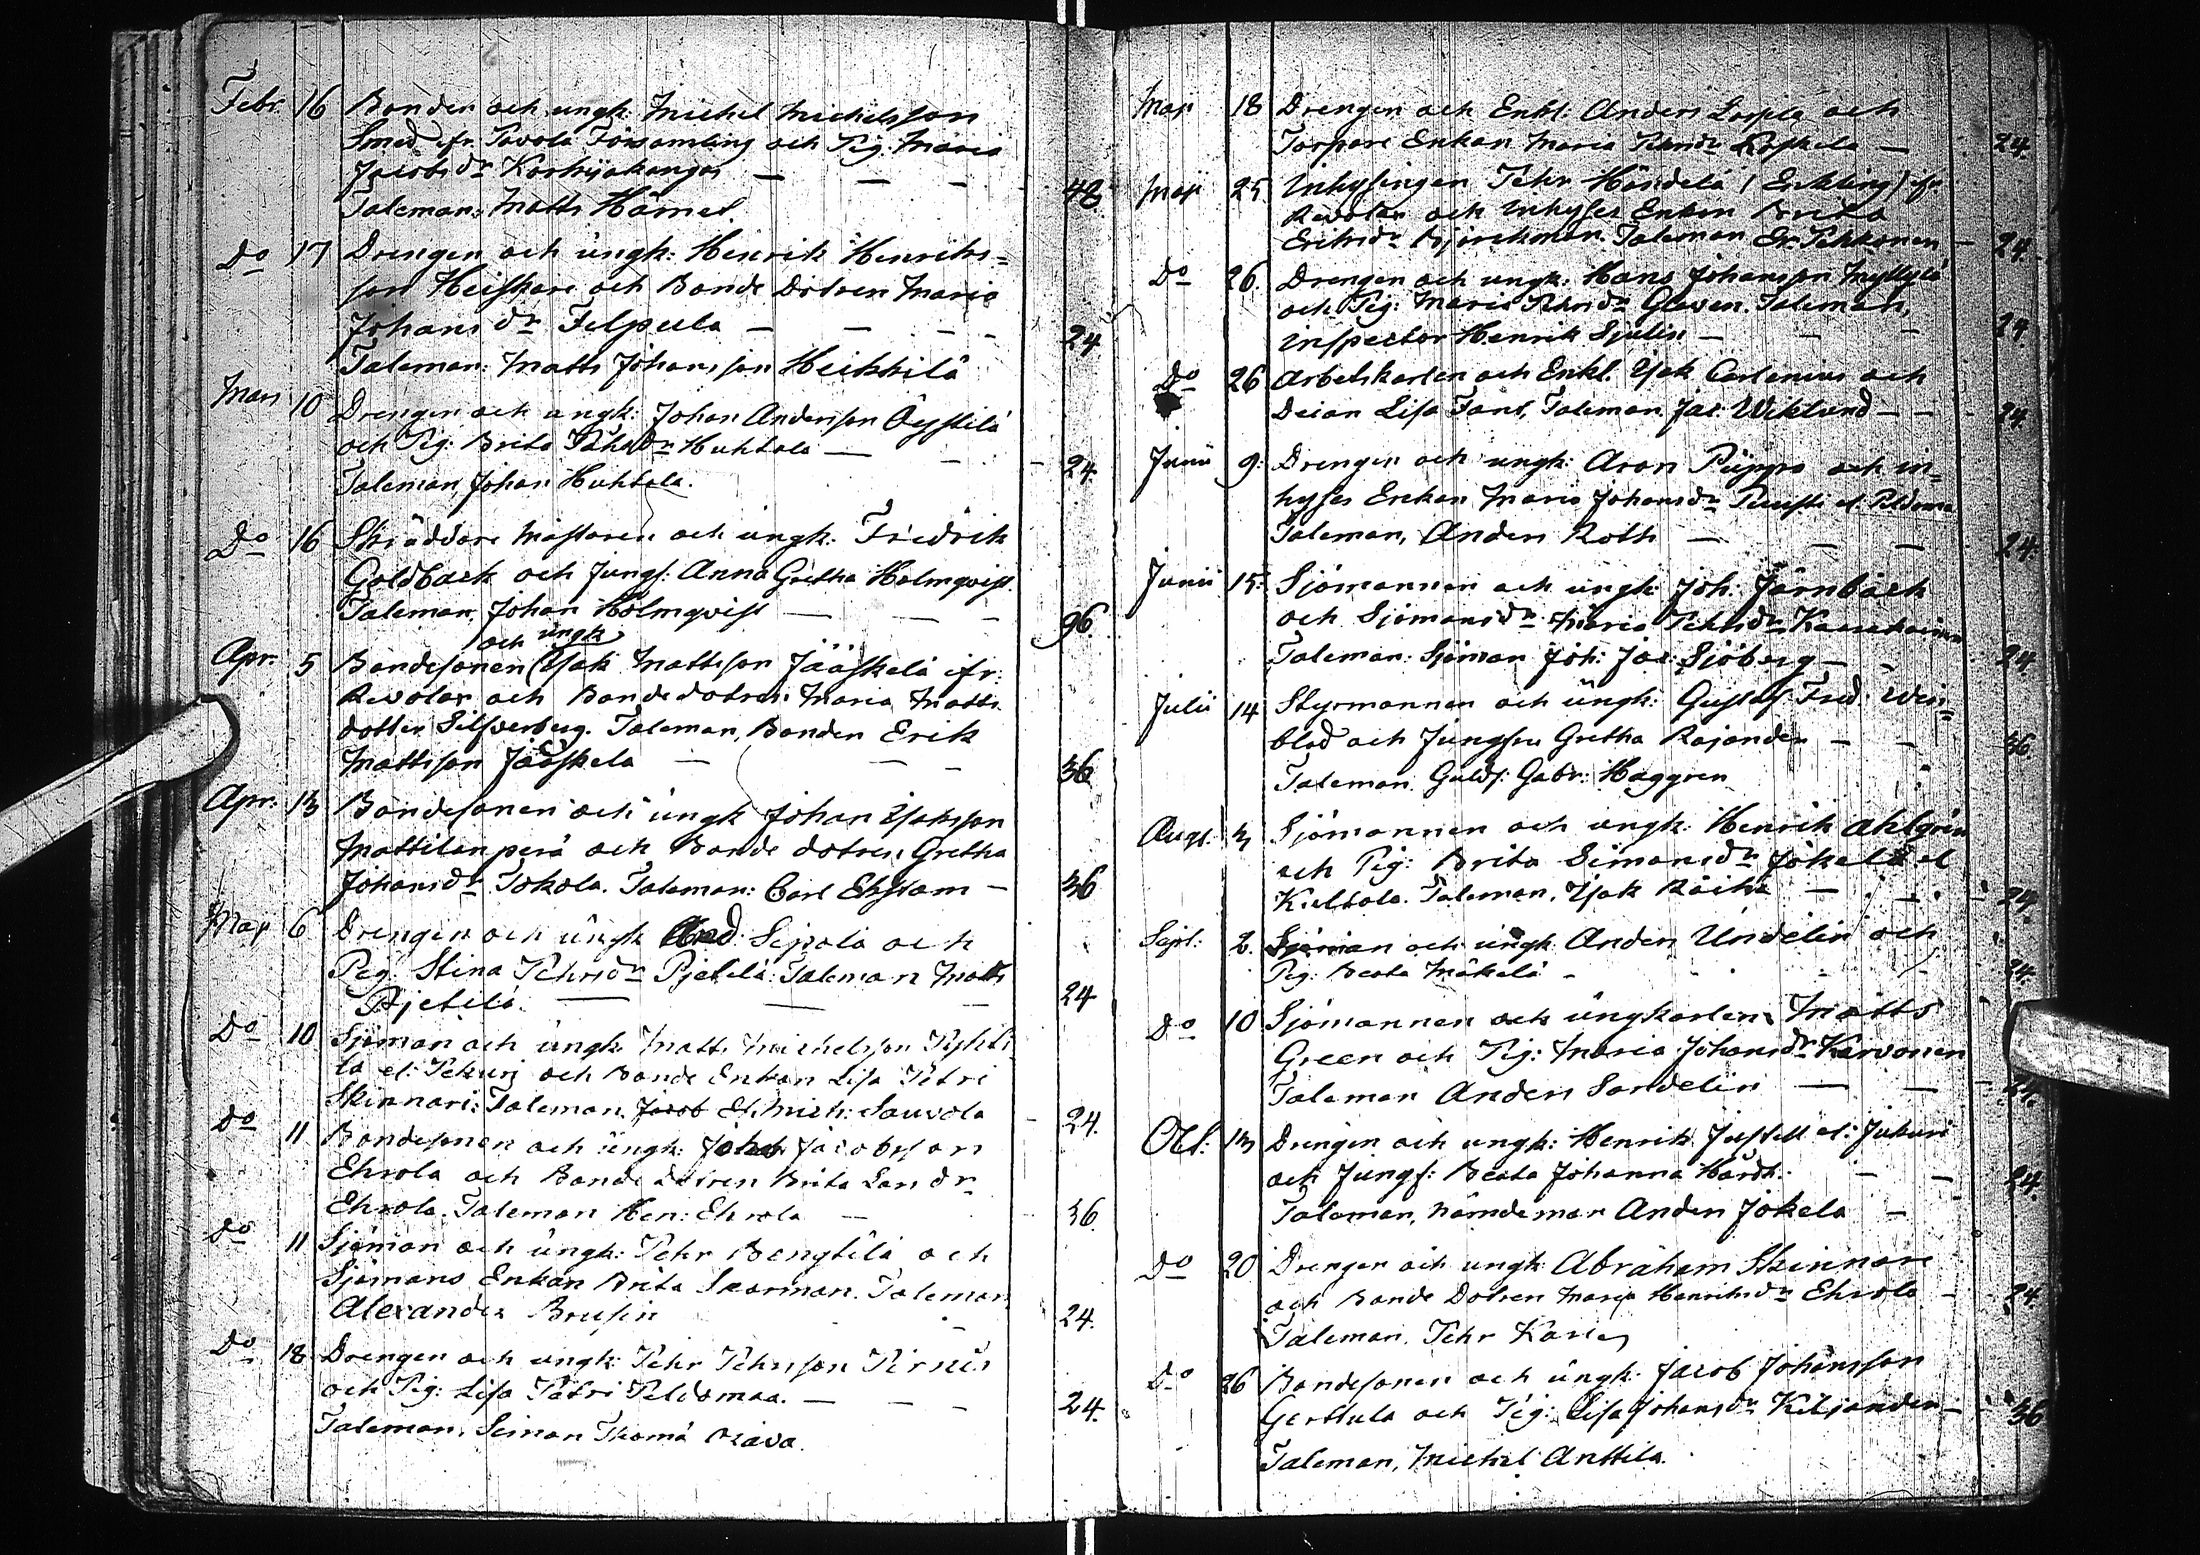 Febr. 16 Bonden och ungk: Michel Michelsson
Smed ifr. Pavola Församling och Pig: Maria
Jacobs dr Korhijakangas — — — 48
Taleman: Matts Hämel.
Do 17 Drengen och ungk: Henrik Henriks=
son Heiskari och Bonde Dotren Maria
Johans dr Filpula — — — 24
Taleman: Matts Johansson Heikkilä
Mars 10 Drengen och ungk: Johan Andersson Öystilä
och Pig: Brita Pehrs dr Huhtala — — 24.
Taleman, Johan Huhtala.
Do 16 Skräddare mästaren och ungk: Fredrik
Goldback och Jungf: Anna Gretha Holmqvist
Taleman, Johan Holmqvist — — — 96.
och ungk
Apr. 5 Bondesonen Isak Mattsson Jääskelä ifr:
Revolax och Bonde dotren Maria Matts
dotter Silfverberg. Taleman, Bonden Erik
Mattsson Jääskelä — — — 36
Apr: 13 Bondesonen och ungk Johan Isaksson
Mattilanperä och Bonde dotren Gretha
Johans dr Tokola. Taleman: Carl Ekstam — 36
Maji 6 Drengen och ungk And: Sipola och
Pig: Stina Pehrs dr Pjetilä Taleman Matts
Pjetilä. — — — 24
Do 10 Sjöman och ungk Matts Michelsson
la el: Pekuri och Bonde Enkan Lisa Petri
Skinnari: Taleman, Jacob el. Mich: Sauvola 24.
Do 11 Bondesonen och ungk: Johan Jacobsson
Ehrola och Bonde dotren Brita Lars dr
Ehrola. Taleman Hen: Ehrola — 36
Do 11 Sjöman och ungk: Pehr Bengtilä och
Sjömans Enkan Brita Skarman. Taleman
Alexander Brusin — 24.
Do 18 Drengen och ungk: Pehr Pehrsson Pirnes
och Pig: Lisa Petri Peldomaa. — — — 24.
Taleman, Simon Thomä
Maji 18 Drengen och Enkl: Anders Loppla och
Torpare Enkan Maria Pehrs dr — 24.
Maji 25. Inhysingen Pehr Händelä (Enkling) ifr
Revolax och Inhyses Enkan Brita
Eriks dr Björckman. Taleman Er: Pekkonen — 24.
Do 26. Drengen och ungk: Hans Johansson Myllylä
och Pig: Maria Pehrs dr Gleven. Taleman,
inspector Henrik Sjulin — — — 24.
Do 26 Arbetskarlen och Enkl. Isak Carlenius och
Deian Lisa Fant, Taleman Jac: Wiklund — — 24.
Junii 9. Drengen och ungk: Aron Piippo och in=
hyses Enkan Maria Johans dr el. Peldoma
Taleman, Anders Roth — — — 24.
Junii 15. Sjömannen och ungk Joh: Järnback
och Sjömans dr Maria Pehrs dr
Taleman: Sjöman Joh: Jac: Sjöberg — — 24
Julii 14 Styrmannen och ungk: Gustaf Fred: Win=
blad och Jungfru Gretha Rajander — — 36.
Taleman Guldf: Gabr: Haggren
Aug: 3 Sjömannen och ungk: Henrik Ahlgren
och Pig: Brita Simons dr Jokela el
Kieltola. Taleman, Isak Räihä — 24.
Sept: 2. Sjöman och ungk Anders Undelin och
Pig: Beata Mäkelä — 24.
Do 10 Sjömannen och ungkarlen Matts
Green och Pig: Maria Johans dr Karvonen
Taleman Anders Sandelin — — 24.
Oct: 13 Drengen och ungk: Henrik Justell el: Jukuri
och Jungf: Beata Johanna Hårdh. — — 24.
Taleman, nämdeman Anders Jokela —
Do 20 Drengen och ungk: Abraham Skinnare
och Bonde Dotren Maria Henriks dr Ehrola — 24.
Taleman, Pehr
Do 26 Bondesonen och ungk: Jacob Johansson
Gerttula och Pig: Lisa Johans dr Kiljander — 36
Taleman, Michel Anttila.